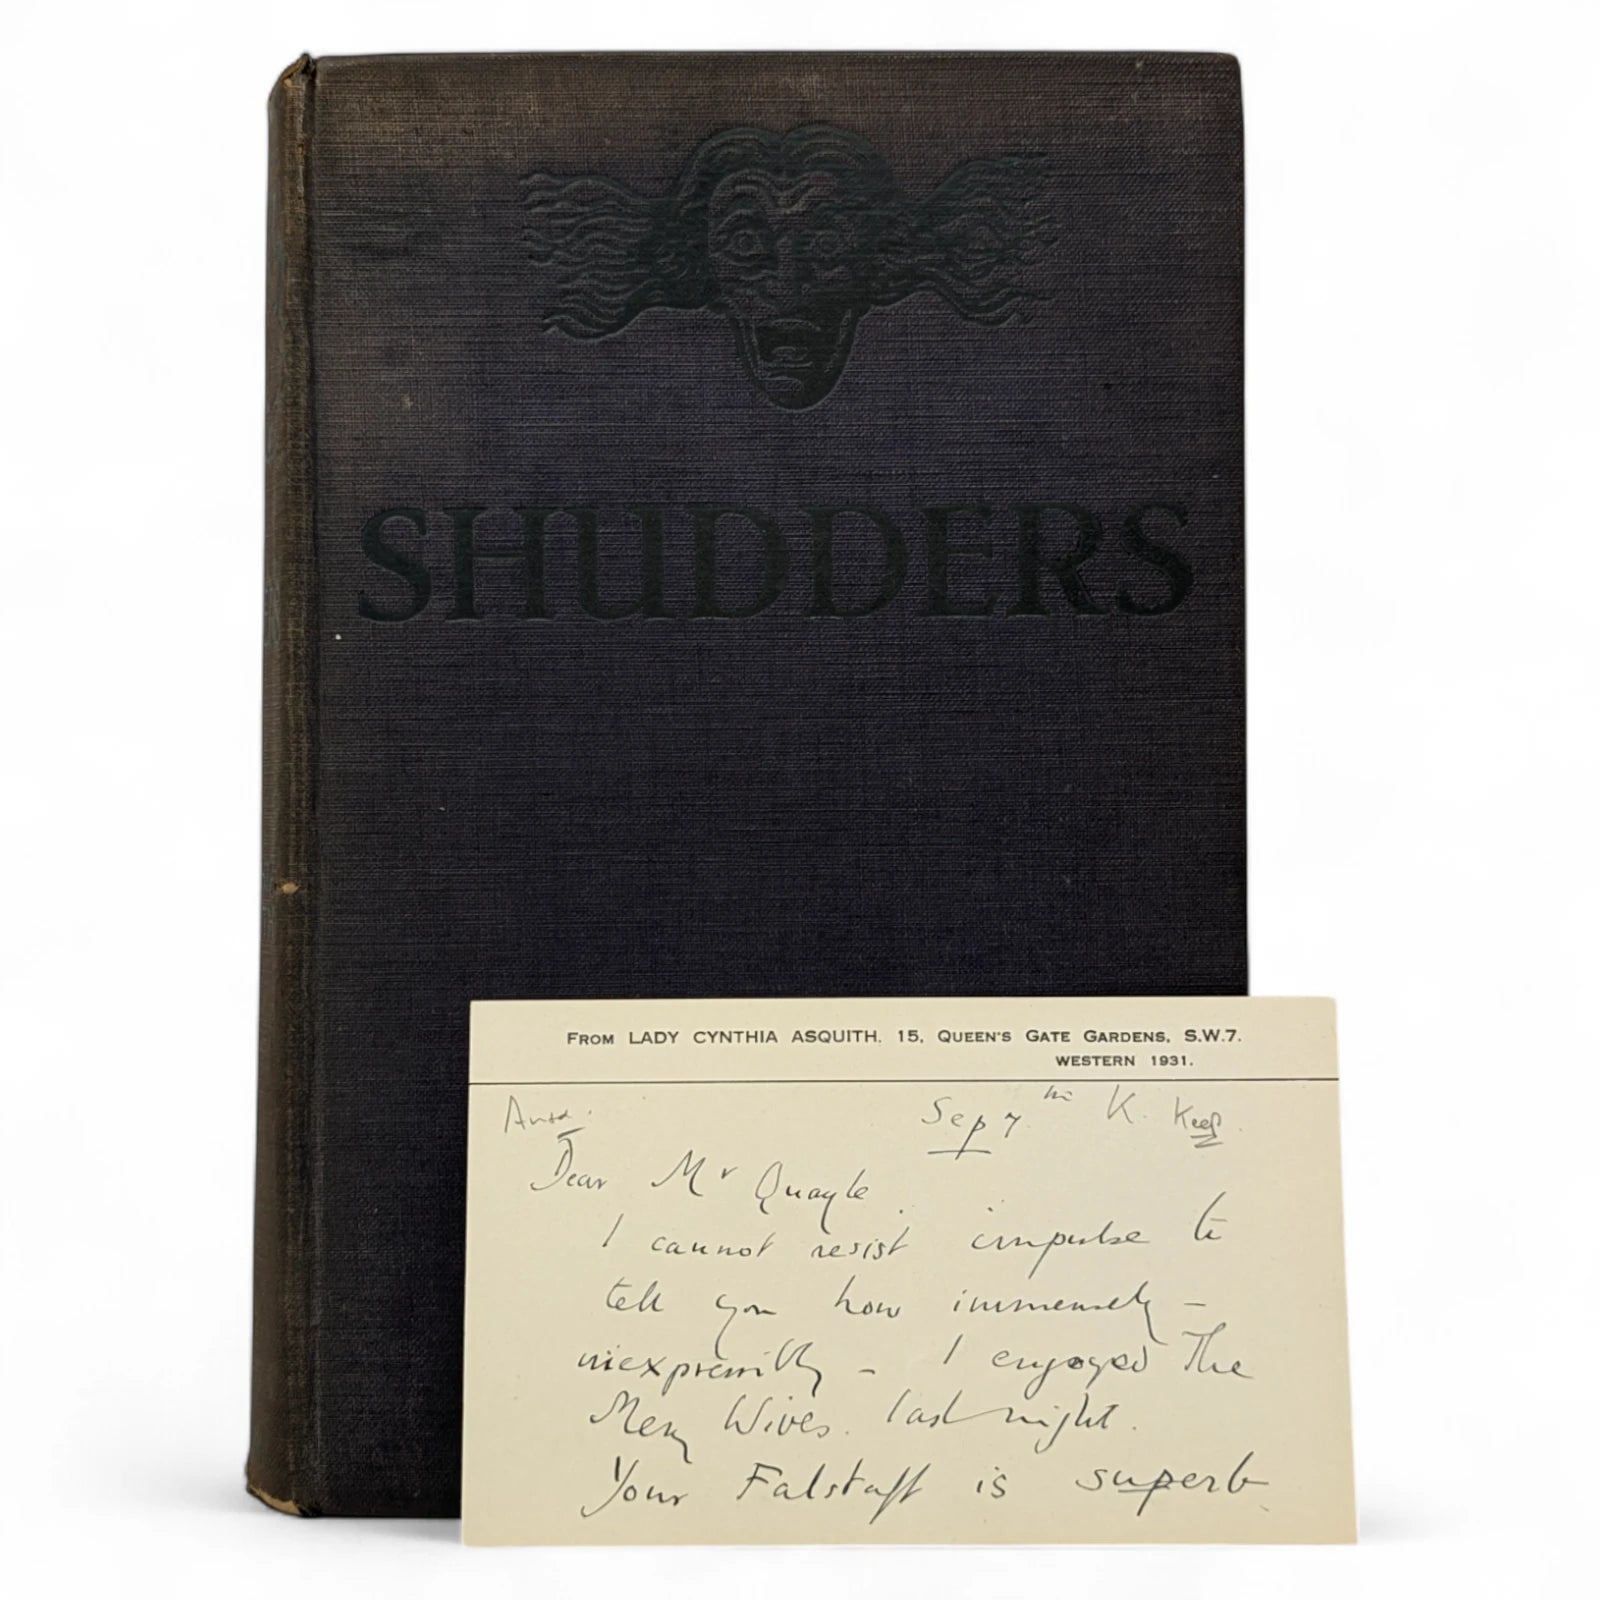 SHUDDERS
FROM LADY CYNTHIA ASQUITH. 15, QUEEN'S GATE GARDENS, S.W.7.
WESTERN 1931.
Sep 7th K. Keep.
Dear Mr Quayle
I cannot resist impulse to
tell you how immensely –
inexpressibly – I enjoyed The
Merry Wives. last night.
Your Falstaff is superb